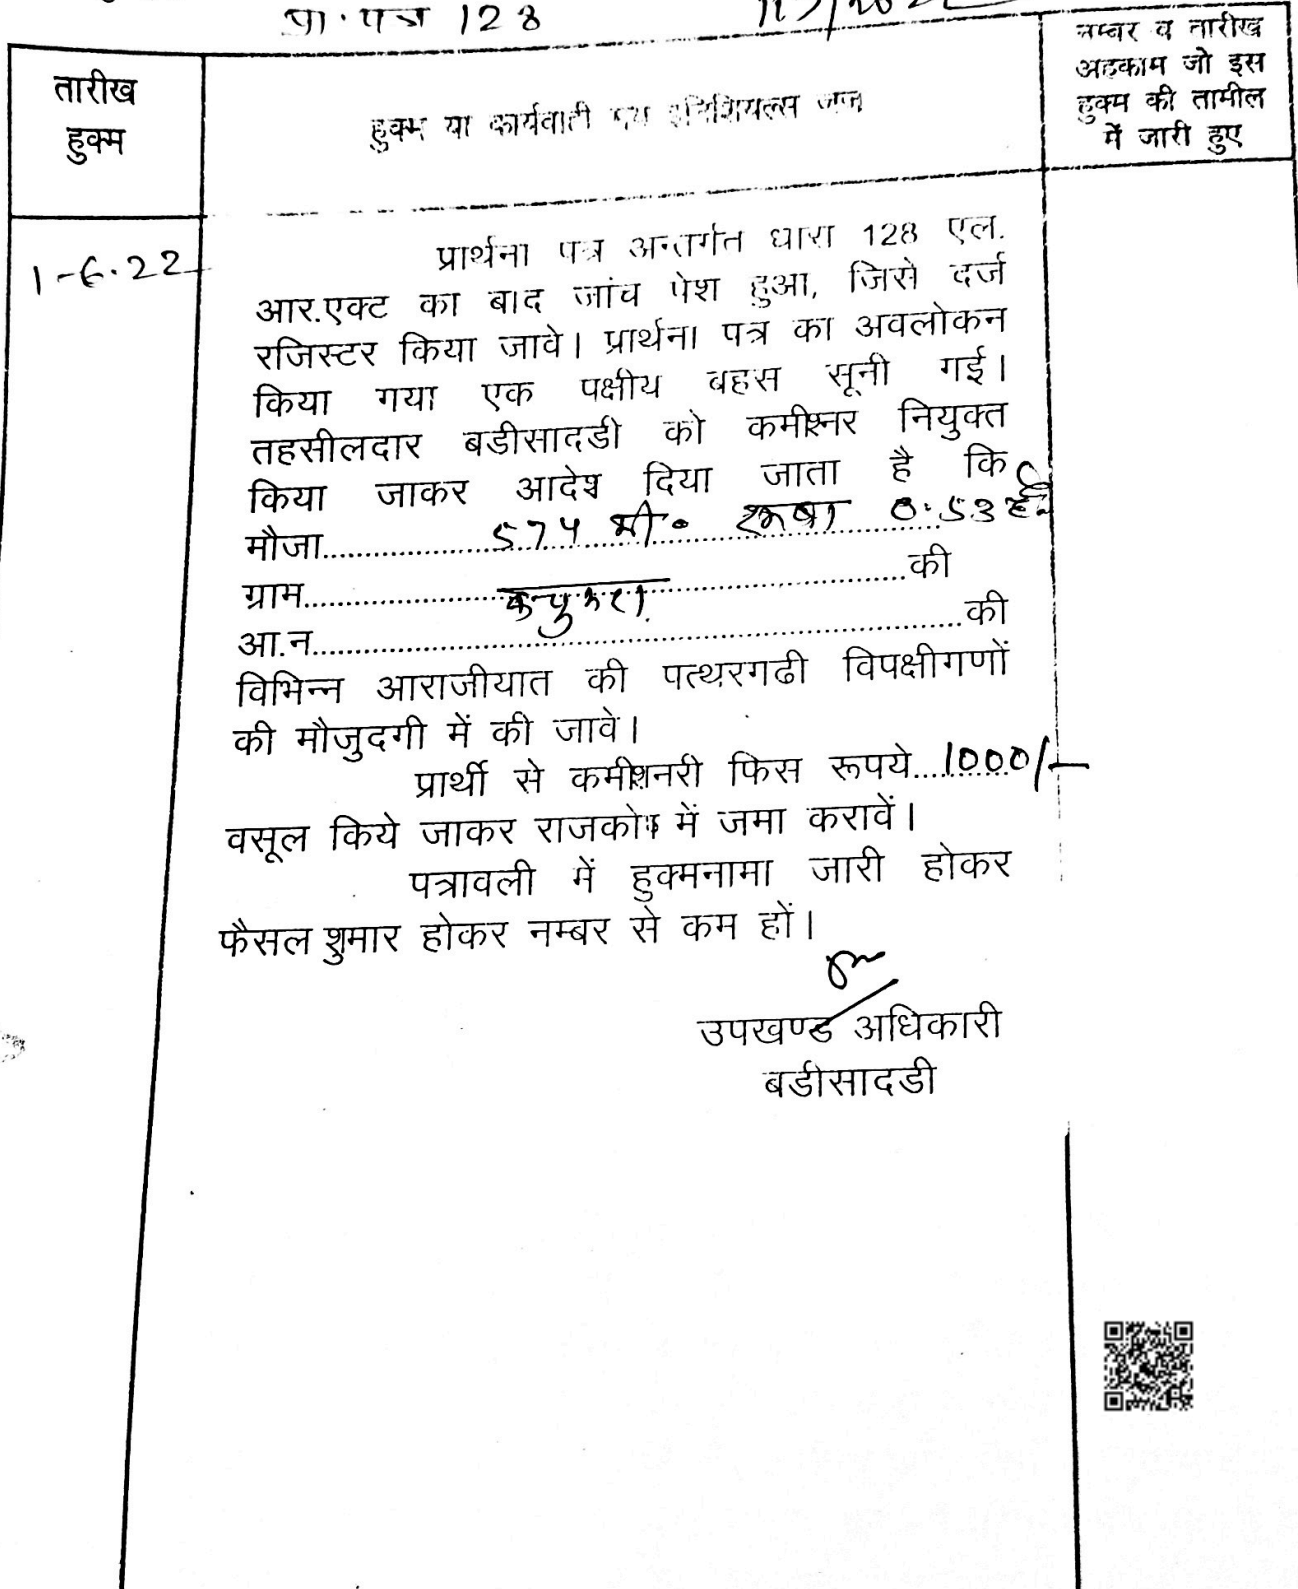 प्रा. पत्र 128
तारीख
हुक्म
हुक्म या कार्यवाही मय इनिशियल्स जज
नम्बर व तारीख
अहकाम जो इस
हुक्म की तामील
में जारी हुए
1-6.22
प्रार्थना पत्र अन्तर्गत धारा 128 एल.
आर.एक्ट का बाद जांच पेश हुआ, जिसे दर्ज
रजिस्टर किया जावे। प्रार्थना पत्र का अवलोकन
किया गया एक पक्षीय बहस सूनी गई।
तहसीलदार बडीसादडी को कमीश्नर नियुक्त
किया जाकर आदेश दिया जाता है कि
मौजा.....574 मी. रकबा 0.53 है.
ग्राम..........की
आ.न..........की
विभिन्न आराजीयात की पत्थरगढी विपक्षीगणों
की मौजुदगी में की जावे।
प्रार्थी से कमीशनरी फिस रूपये....1000/-
वसूल किये जाकर राजकोष में जमा करावें।
पत्रावली में हुक्मनामा जारी होकर
फैसल शुमार होकर नम्बर से कम हों।
उपखण्ड अधिकारी
बडीसादडी